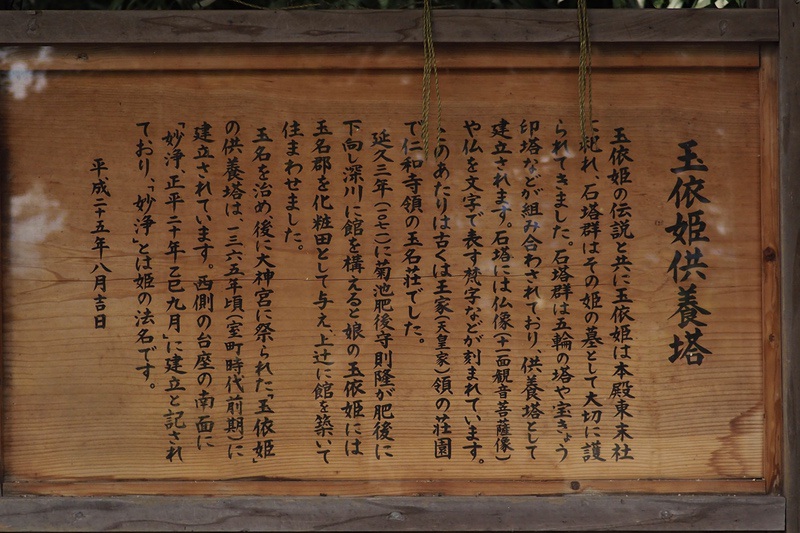 玉依姫供養塔
玉依姫の伝説と共に玉依姫は本殿東末社
に祀れ、石塔群はその姫の墓として大切に護
られてきました。石塔群は五輪の塔や宝きょう
印塔などが組み合わされており、供養塔として
建立されます。石塔には仏像(十一面観音菩薩像)
や仏を文字で表す梵字などが刻まれています。
このあたりは古くは王家(天皇家)領の荘園
で仁和寺領の玉名荘でした。
延久三年(一〇七一)に菊池肥後守則隆が肥後に
下向し深川に館を構えると娘の玉依姫には
玉名郡を化粧田として与え、上辻に館を築いて
住まわせました。
玉名を治め、後に大神宮に祭られた「玉依姫」
の供養塔は、一三六五年頃(室町時代前期)に
建立されています。西側の台座の南面に
「妙浄、正平二十年乙巳九月」に建立と記され
ており、「妙浄」とは姫の法名です。
平成二十五年八月吉日